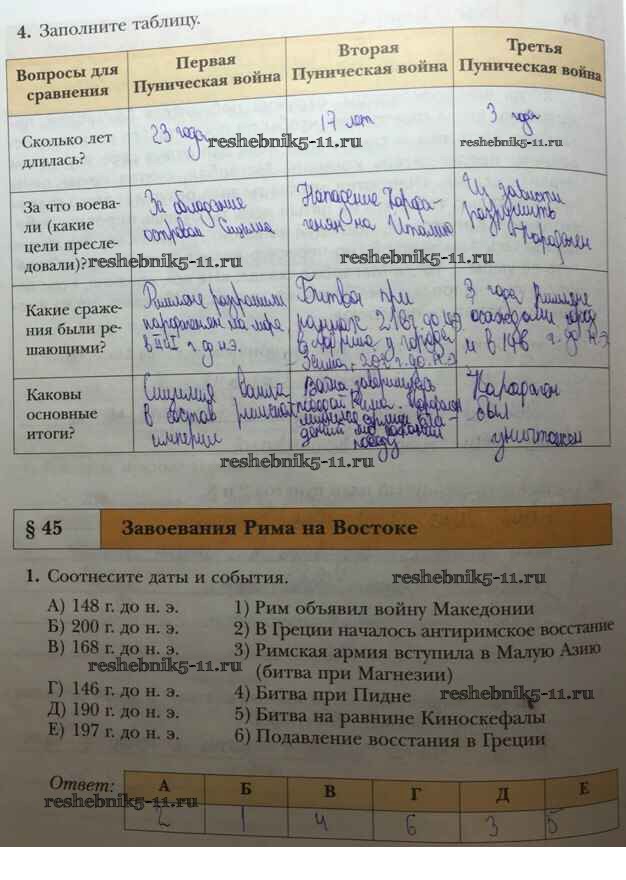 4. Заполните таблицу.
Вопросы для сравнения
Первая Пуническая война
Вторая Пуническая война
Третья Пуническая война
Сколько лет длилась?
23 года
17 лет
3 года
reshebnik5-11.ru
reshebnik5-11.ru
За что воева-
ли (какие
цели пресле-
довали)?
За обладание
островом Сицилия
Нападение Карфа-
генян на Италию
Из зависти
разрушить
Карфаген
reshebnik5-11.ru
reshebnik5-11.ru
Какие сраже-
ния были ре-
шающими?
Римляне разгромили
карфагенян на море
в г. до н.э.
Битва при
216г. до н.э.
у города
Зама, 202 г. до н.э
3 года Римляне
осаждали город
и в 146 г. до н.э.
Каковы
основные
итоги?
Сицилия вошла
в состав римской
империи
Война завершилась
победой Рима. Карфаген
победу
Карфаген
был
уничтожен
reshebnik5-11.ru
§ 45 Завоевания Рима на Востоке
1. Соотнесите даты и события.
reshebnik5-11.ru
А) 148 г. до н. э.
Б) 200 г. до н. э.
В) 168 г. до н. э.
Г) 146 г. до н. э.
Д) 190 г. до н. э.
Е) 197 г. до н. э.
1) Рим объявил войну Македонии
2) В Греции началось антиримское восстание
3) Римская армия вступила в Малую Азию
(битва при Магнезии)
4) Битва при Пидне
5) Битва на равнине Киноскефалы
6) Подавление восстания в Греции
reshebnik5-11.ru
reshebnik5-11.ru
Ответ:
А Б В Г Д Е
2 1 4 6 3 5
reshebnik5-11.ru